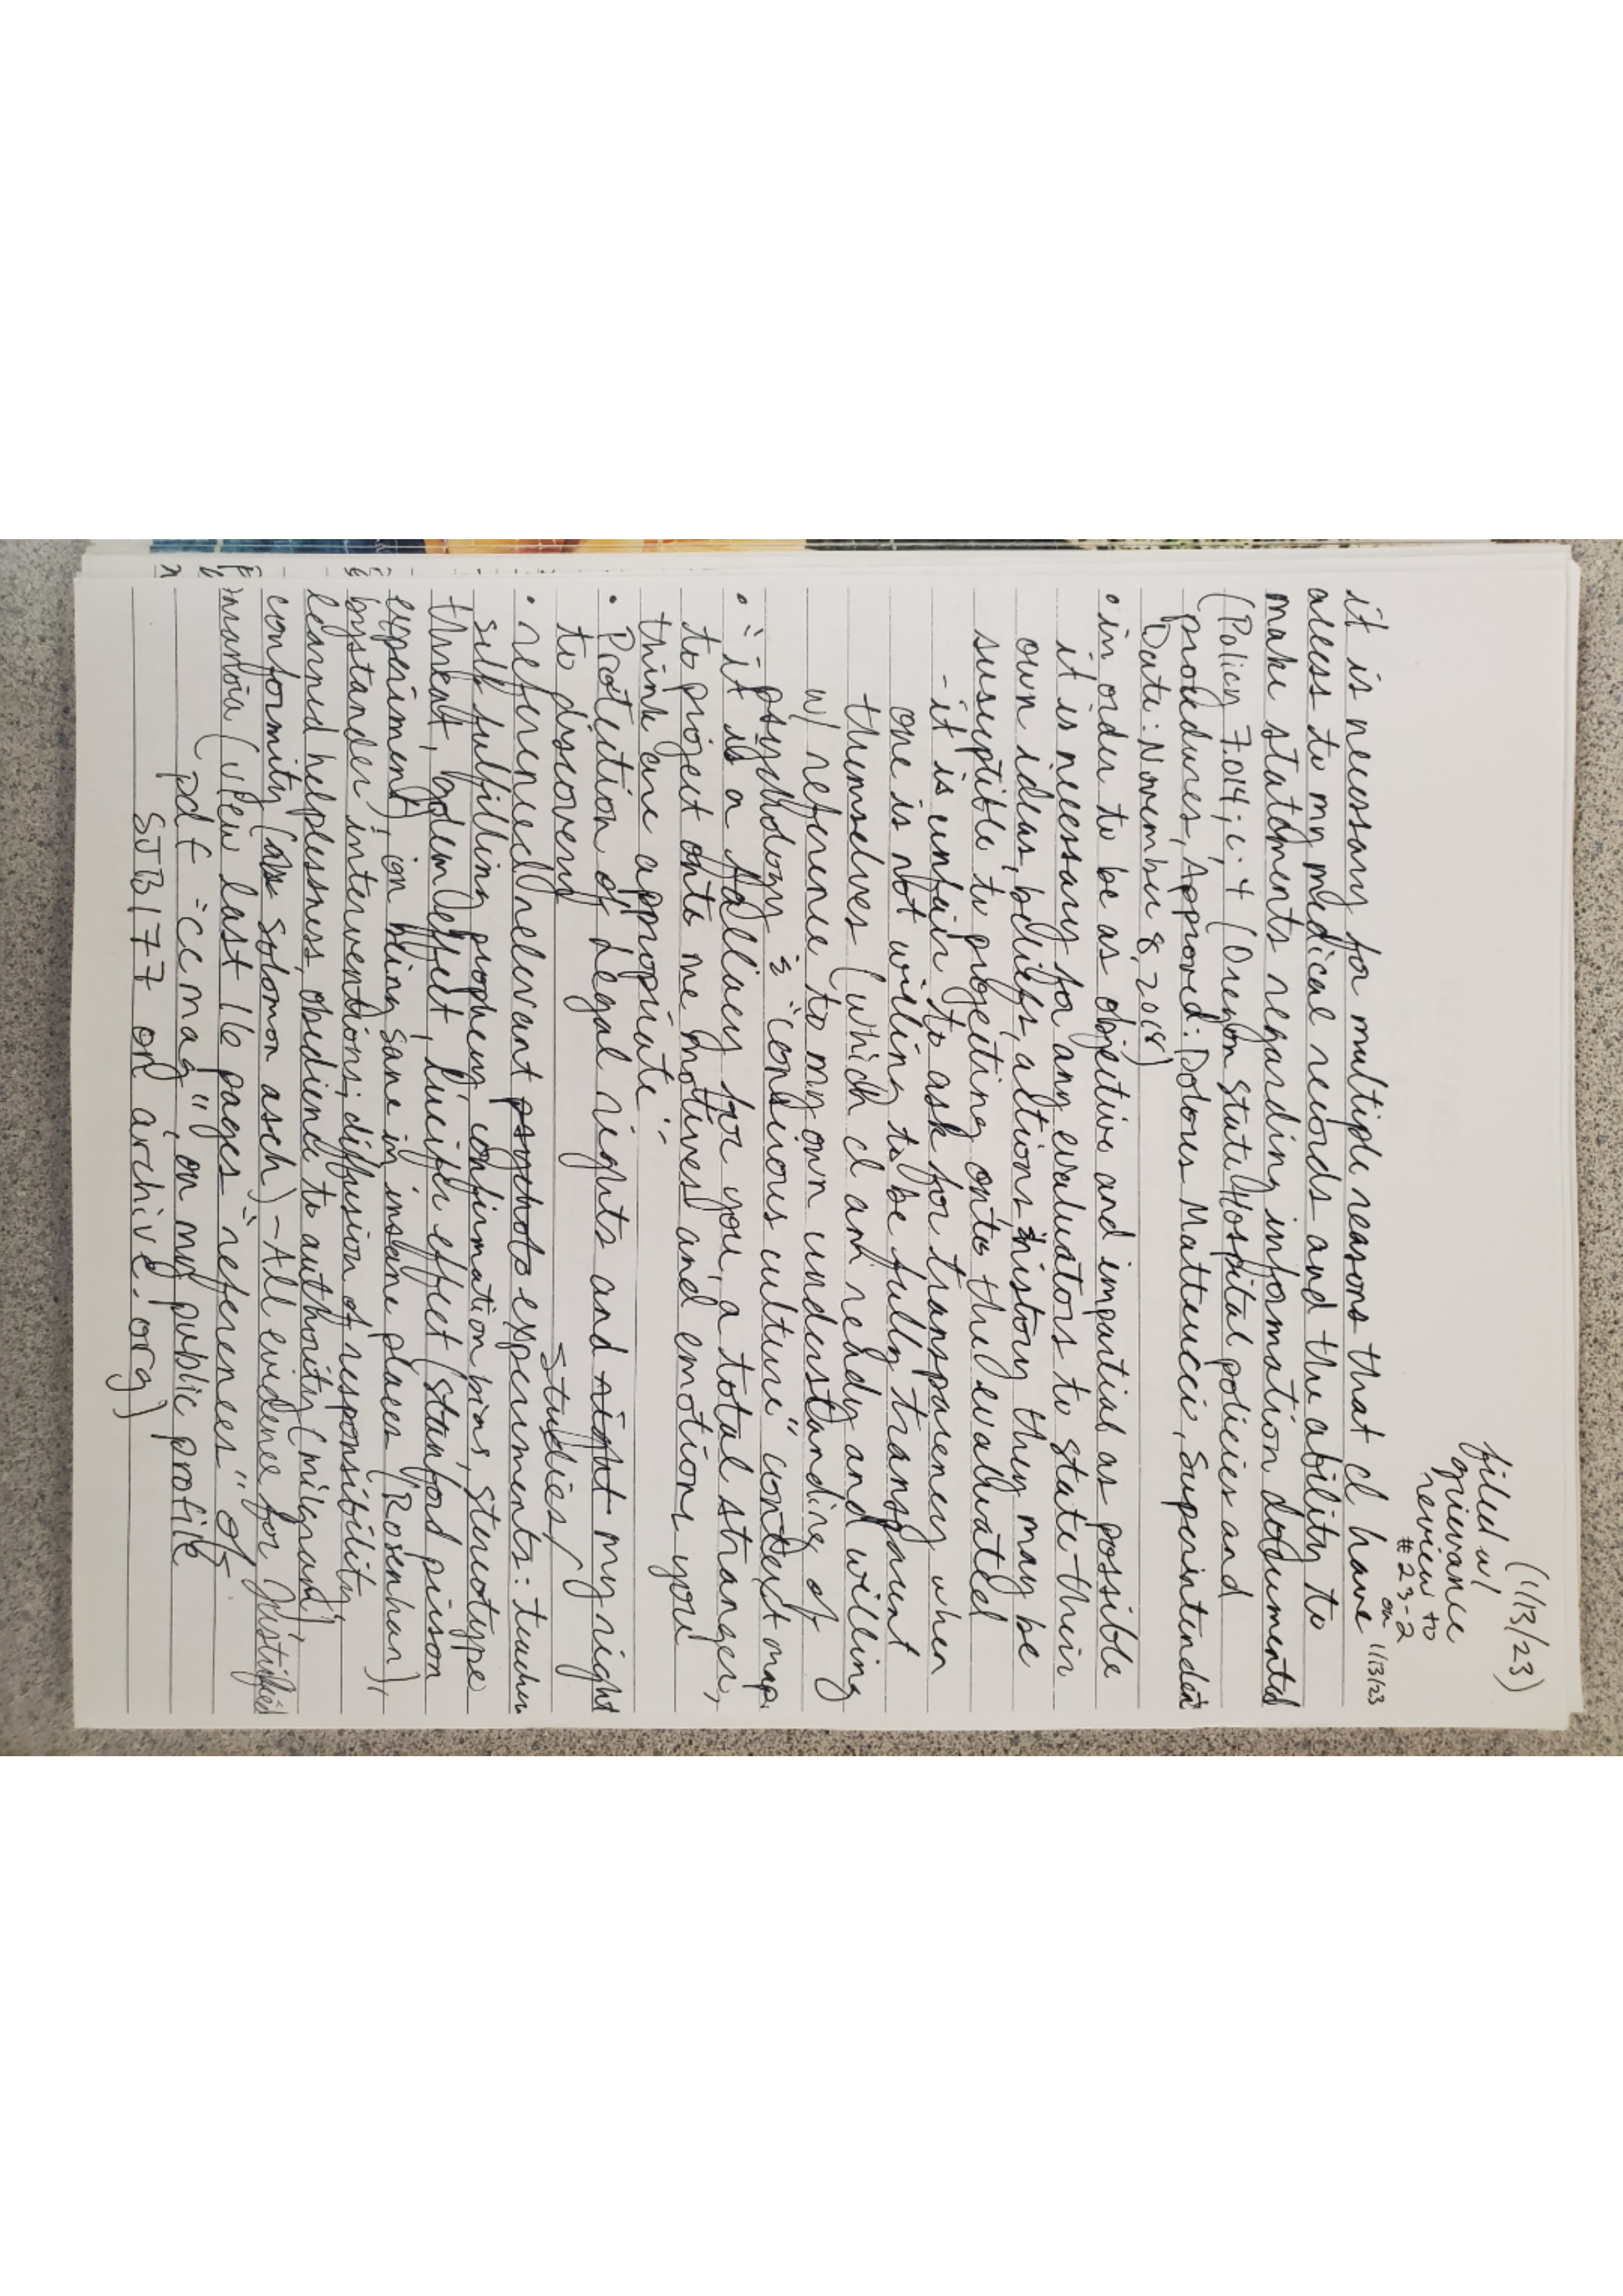 (1/13/23)
filed w/
grievance
review to
#23-2
on 1/13/23
it is necessary for multiple reasons that I have
access to my medical records and the ability to
make statements regarding information documented
(Policy 7.014; c. 4 (Oregon State Hospital policies and
procedures, Approved: Dolores Matteucci, Superintendent
Date: November 8, 2018)
• in order to be as objective and impartial as possible
it is necessary for any evaluators to state their
own ideas, beliefs, actions, history they may be
susceptible to projecting onto the evaluated
- it is unfair to ask for transparency when
one is not willing to be fully transparent
themselves (which I am ready and willing
w/ reference to my own understanding of
psychology & "conscious culture" context map
• "it is a fallacy for you, a total stranger,
to project onto me motives and emotions you
think are appropriate"
• Protection of legal rights and right my right
to discovery
studies/
• referenced relevant psycholo experiments: teacher
self fulfilling prophecy, confirmation bias, stereotype
threat, golem effect, lucifer effect (stanford prison
experiment), on being sane in insane places (Rosenhan),
bystander interventions; diffusion of responsibility,
learned helplessness, obedience to authority (milgram)
conformity (solomon asch) - All evidence for justified
(view last 16 pages "references" of
pdf "cc map", on my public profile
SJB177 on archive.org)